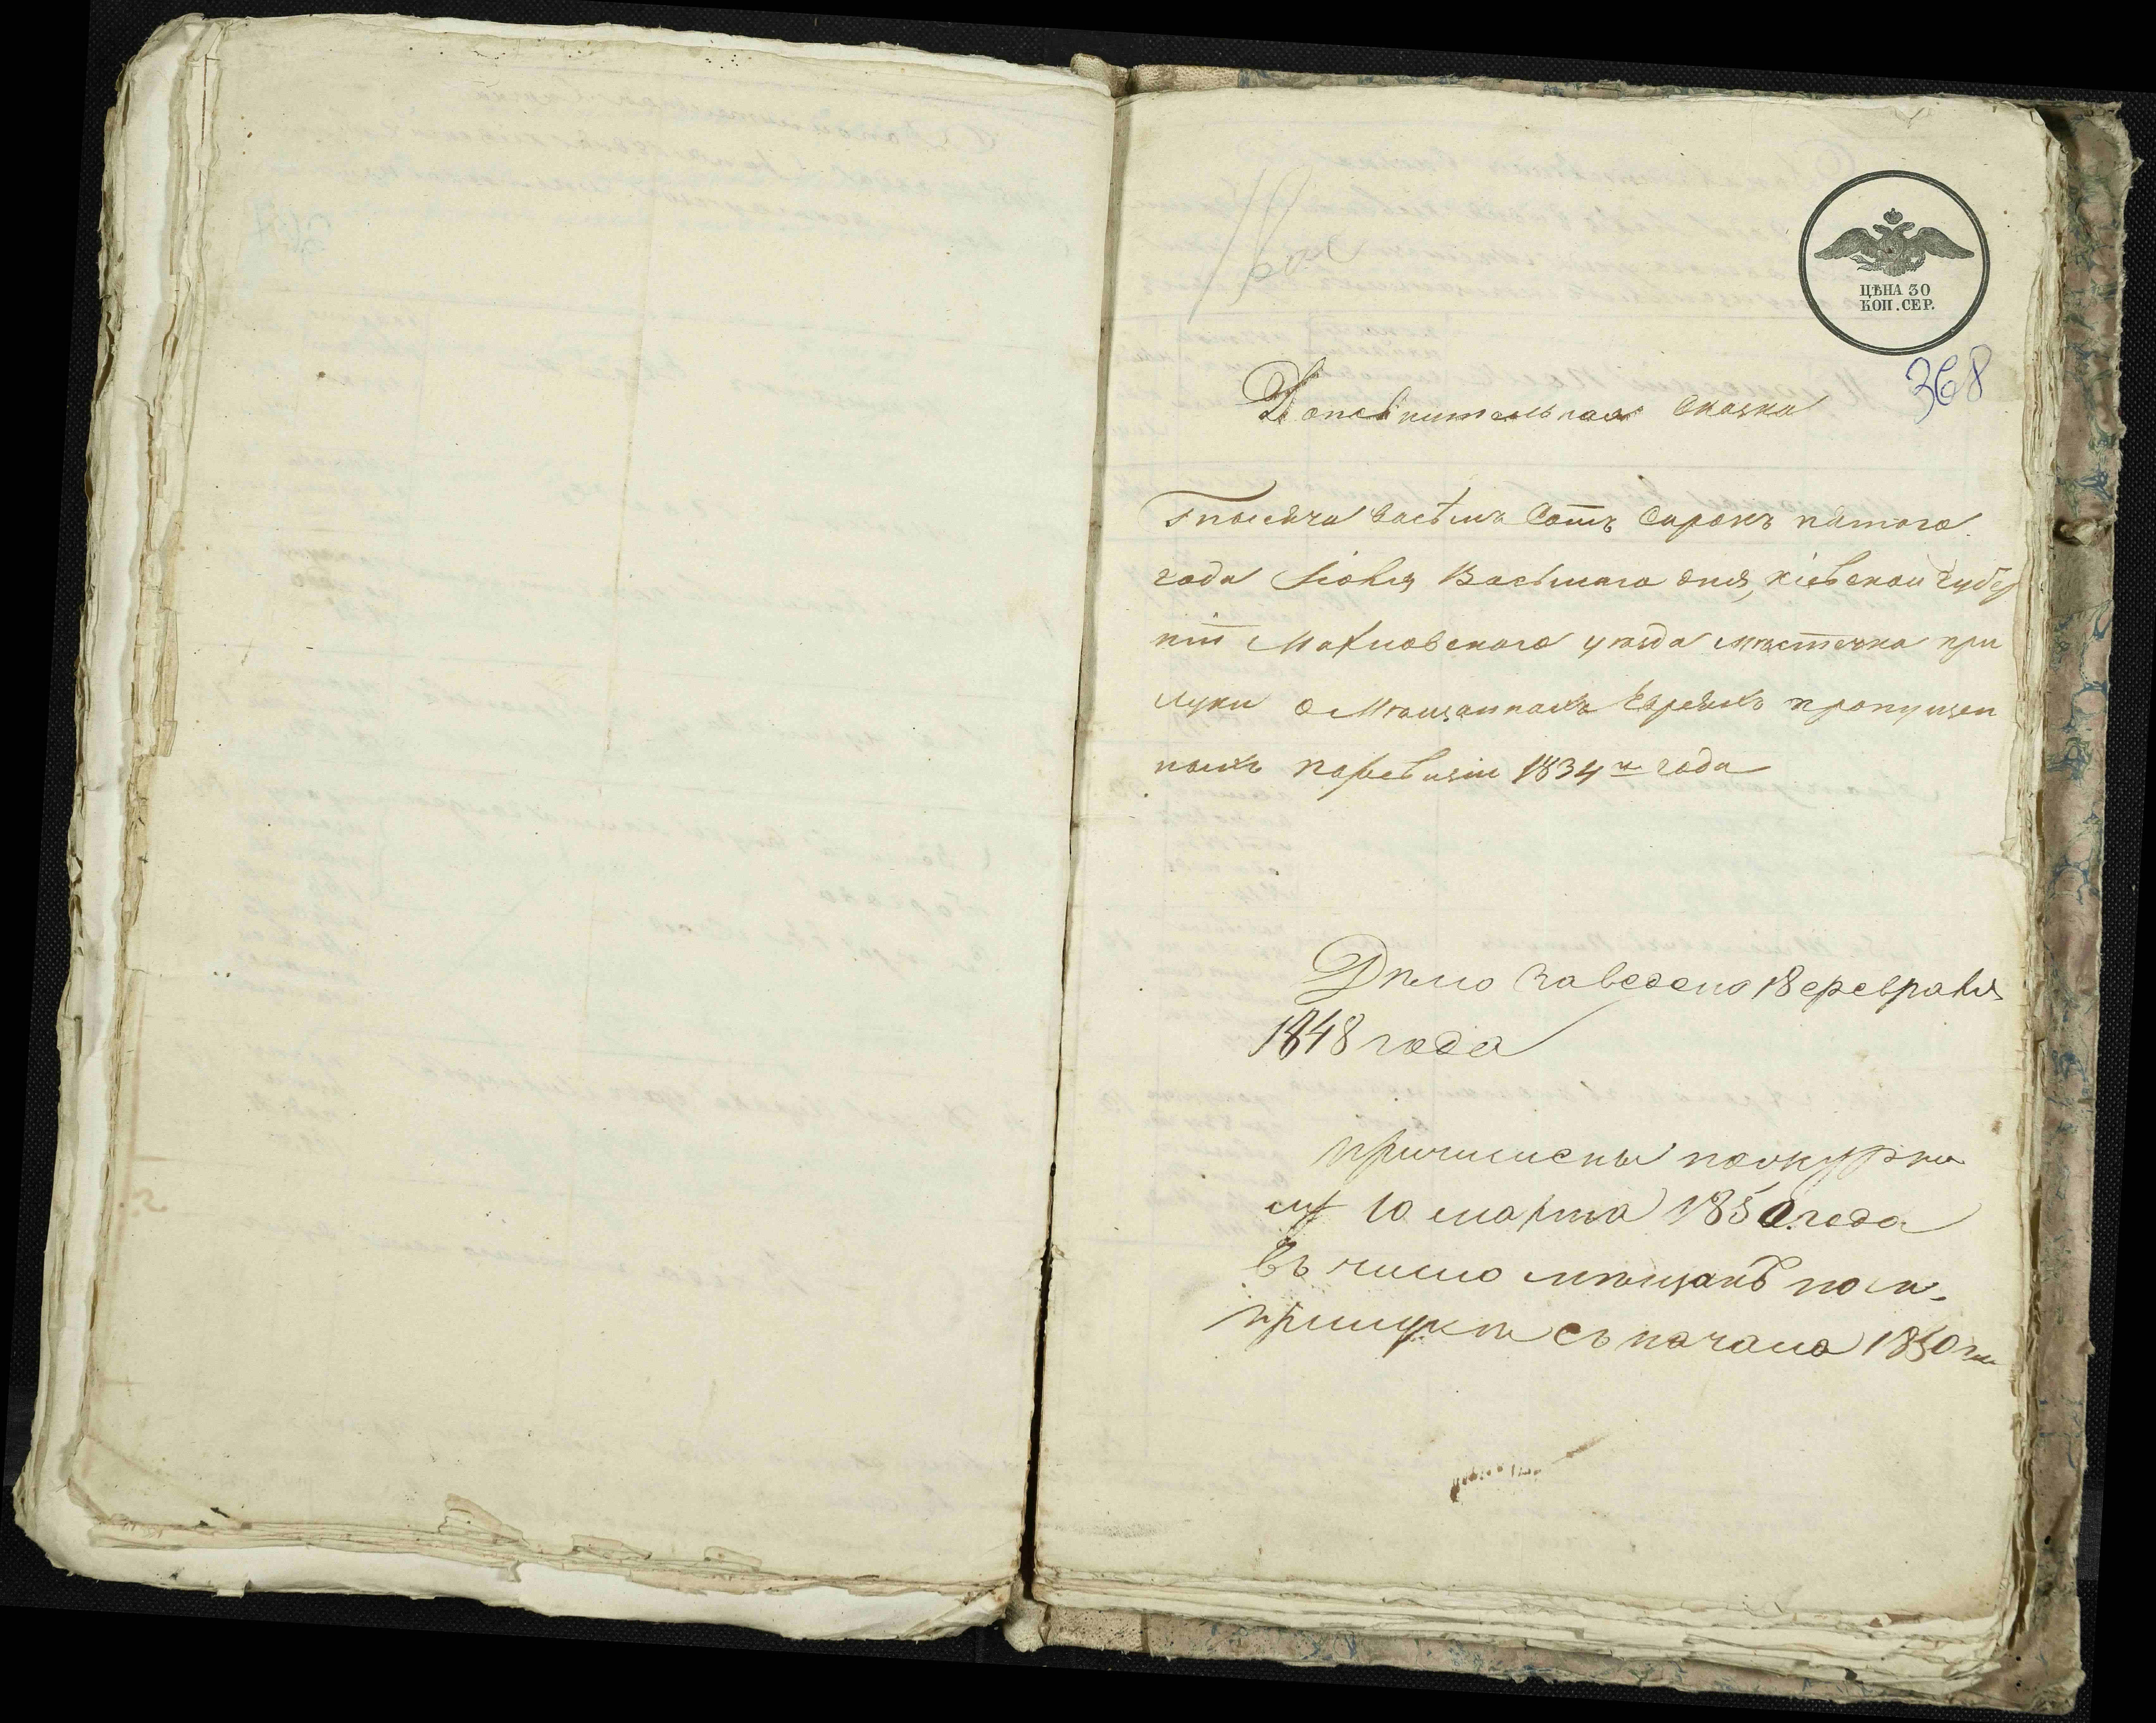 ЦѢНА 30
КОП. СЕР.
368
Дополнительная Сказка
Тысяча восѣмъ Сотъ Сорокъ пятого
года Іюля Восьмаго дня, кіевской Губер
ніи Махновского уѣзда мѣстечка При
луки о Мѣщаннахъ Евреяхъ пропущен
ныхъ поревизіи 1834го года
Дѣло заведено 18 февраля
1848 года
причислены
10 марта 1850 года
въ число мѣщанъ по м.
Прилукѣ съ начала 1850 г.